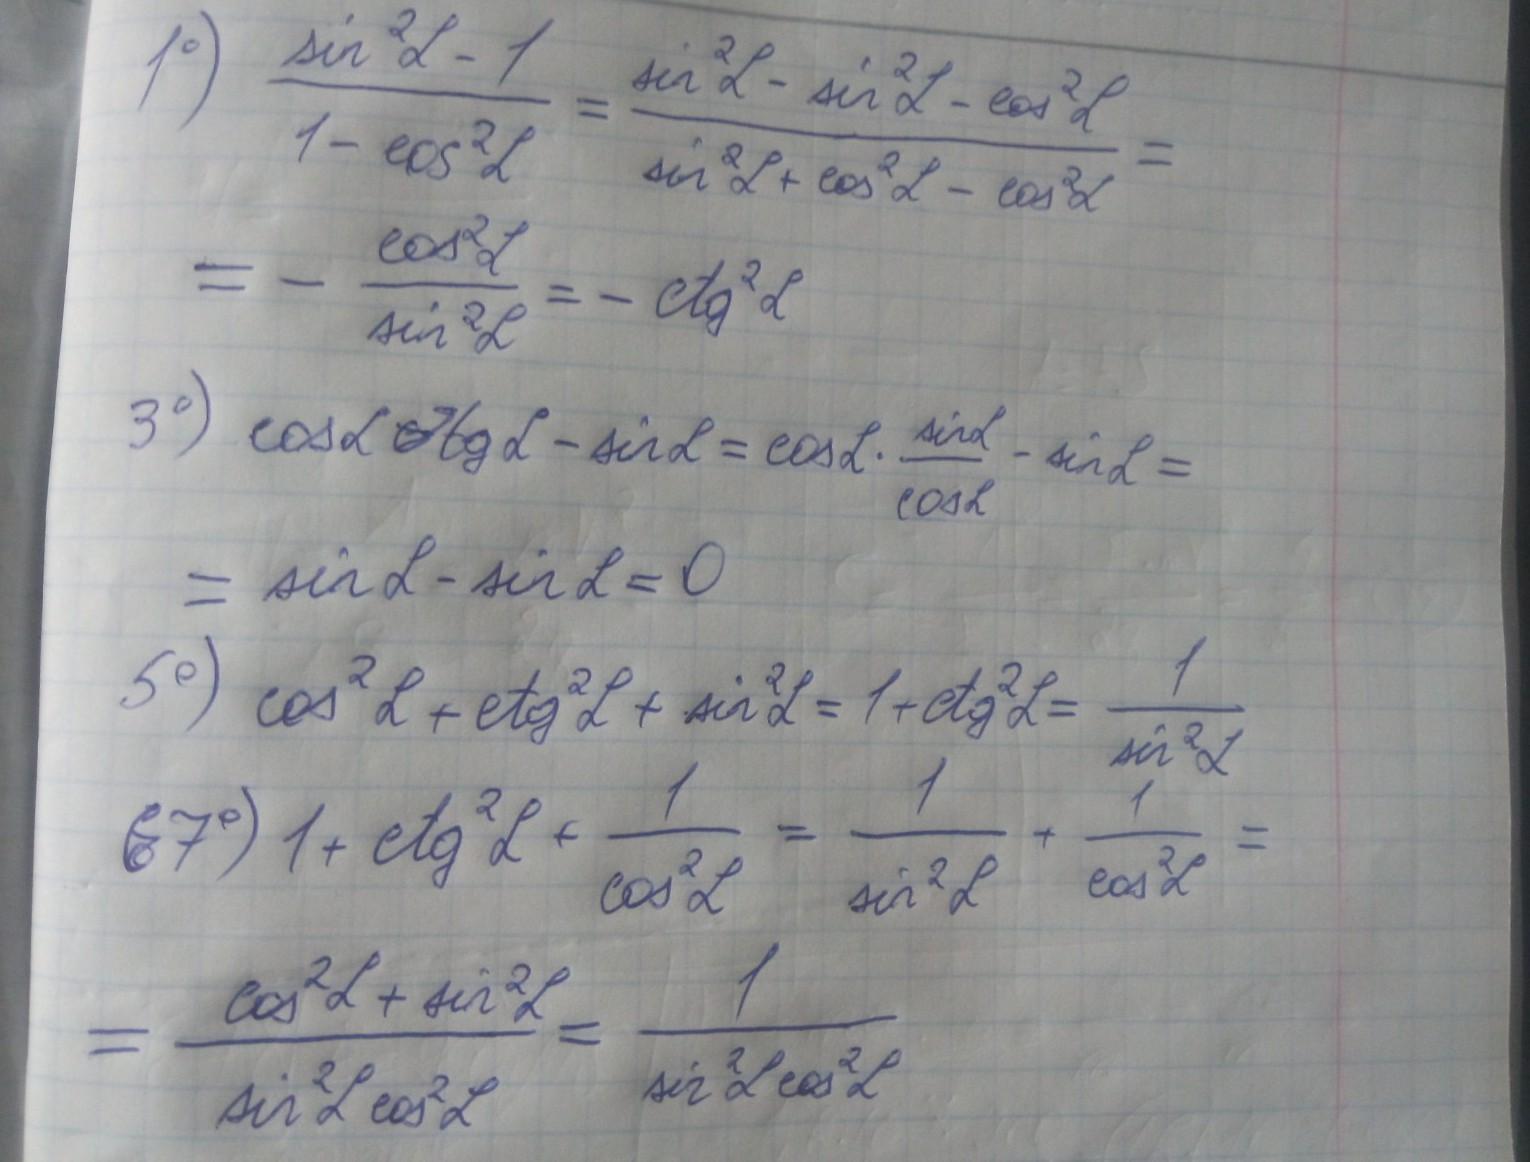 1°) (sin²α - 1)/(1 - cos²α) = (sin²α - sin²α - cos²α)/(sin²α + cos²α - cos²α) =
= - cos²α/sin²α = - ctg²α
3°) cosα tgα - sinα = cosα · sinα/cosα - sinα =
= sinα - sinα = 0
5°) cos²α + ctg²α + sin²α = 1 + ctg²α = 1/sin²α
7°) 1 + ctg²α + 1/cos²α = 1/sin²α + 1/cos²α =
= (cos²α + sin²α)/(sin²α cos²α) = 1/(sin²α cos²α)